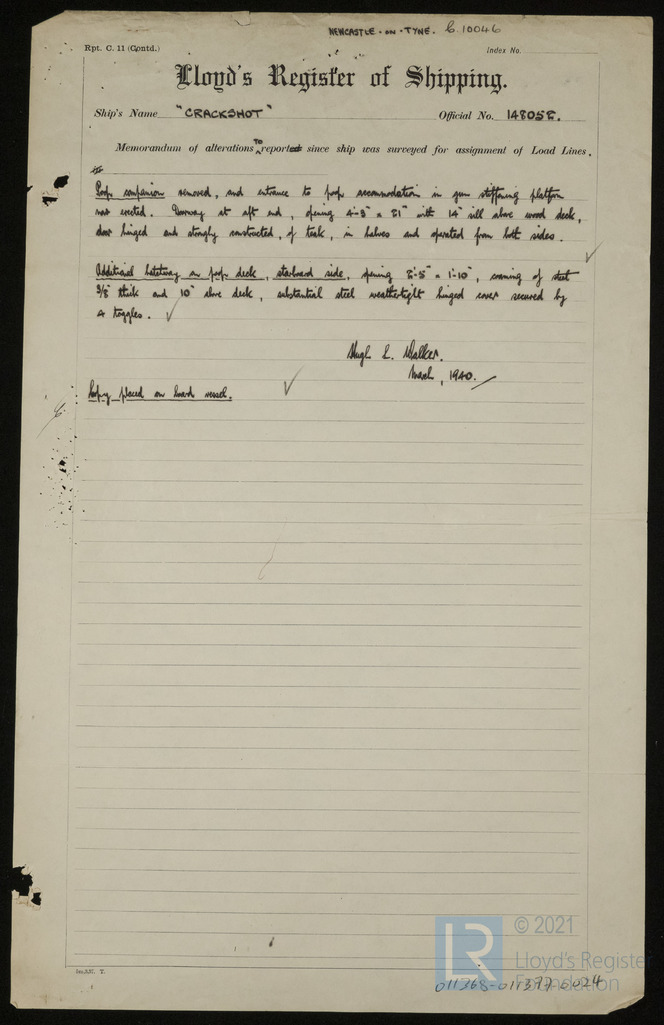 NEWCASTLE-ON-TYNE. C.10046
Rpt. C. 11 (Contd.)
Index No.
Lloyd's Register of Shipping.
Ship's Name "CRACKSHOT" Official No. 148052.
Memorandum of alterations TO report since ship was surveyed for assignment of Load Lines.
Poop companion removed, and entrance to poop accommodation in gun stiffening platform
now erected. Doorway at aft end, opening 4-9" x 21" with 14" sill above wood deck,
door hinged and strongly constructed, of teak, in halves and operated from both sides.
Additional hatchway on poop deck, starboard side, opening 2-5" x 1-10", coaming of steel
3/8" thick and 10" above deck, substantial steel weathertight hinged cover secured by
4 toggles.
Hugh L. Walker.
March, 1940.
Copy placed on board vessel.
© 2021
LR
Lloyd's Register
Foundation
011368-011377-0024